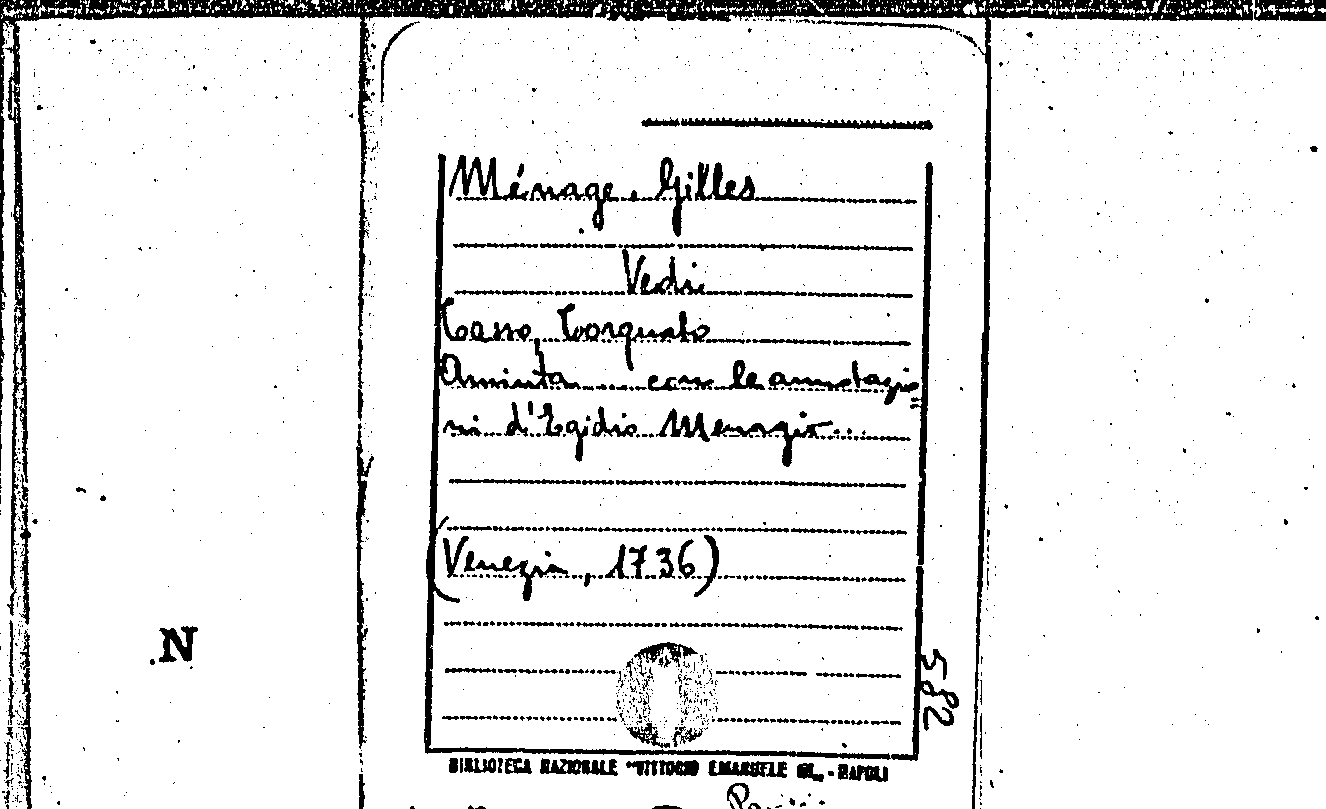 Ménage, Gilles
Vedi
Tasso, Torquato
Aminta... con le annotazio=
ni d'Egidio Menagio...
(Venezia, 1736)
N
582
BIBLIOTECA NAZIONALE "VITTORIO EMANUELE III„ - NAPOLI